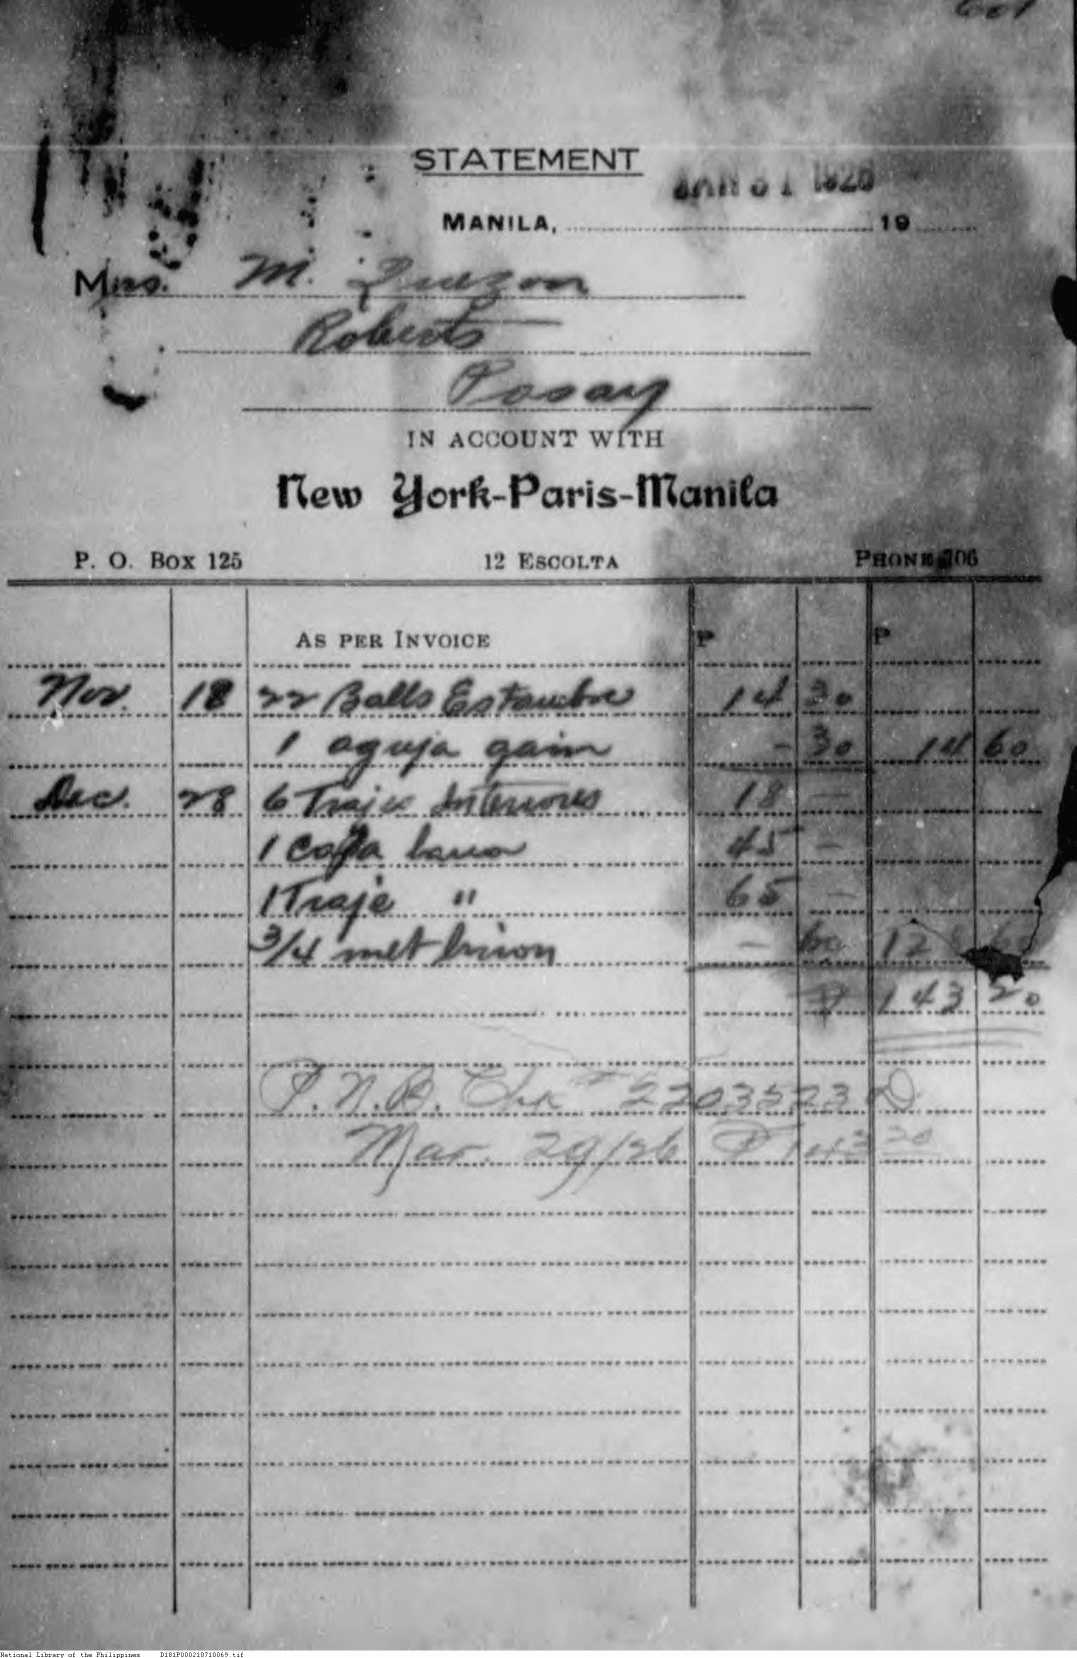 601
STATEMENT
JAN 31 1926
MANILA, 19
Mrs. M. Quezon
Roberts
Pasay
IN ACCOUNT WITH
New York-Paris-Manila
P. O. BOX 125 12 ESCOLTA PHONE 706
AS PER INVOICE P P
Nov. 18 22 Balls Estambre 14 30
1 aguja - 30 14 60
Dec. 28 6 Trajes Interiores 18 -
1 Capa 45 -
1 Traje " 65 -
3/4 met - 60 128 60
₱ 143 20
P.N.B. Chk # 2203523 D
Mar. 29/26 ₱ 143 20
National Library of the Philippines D181P000210710069.tif